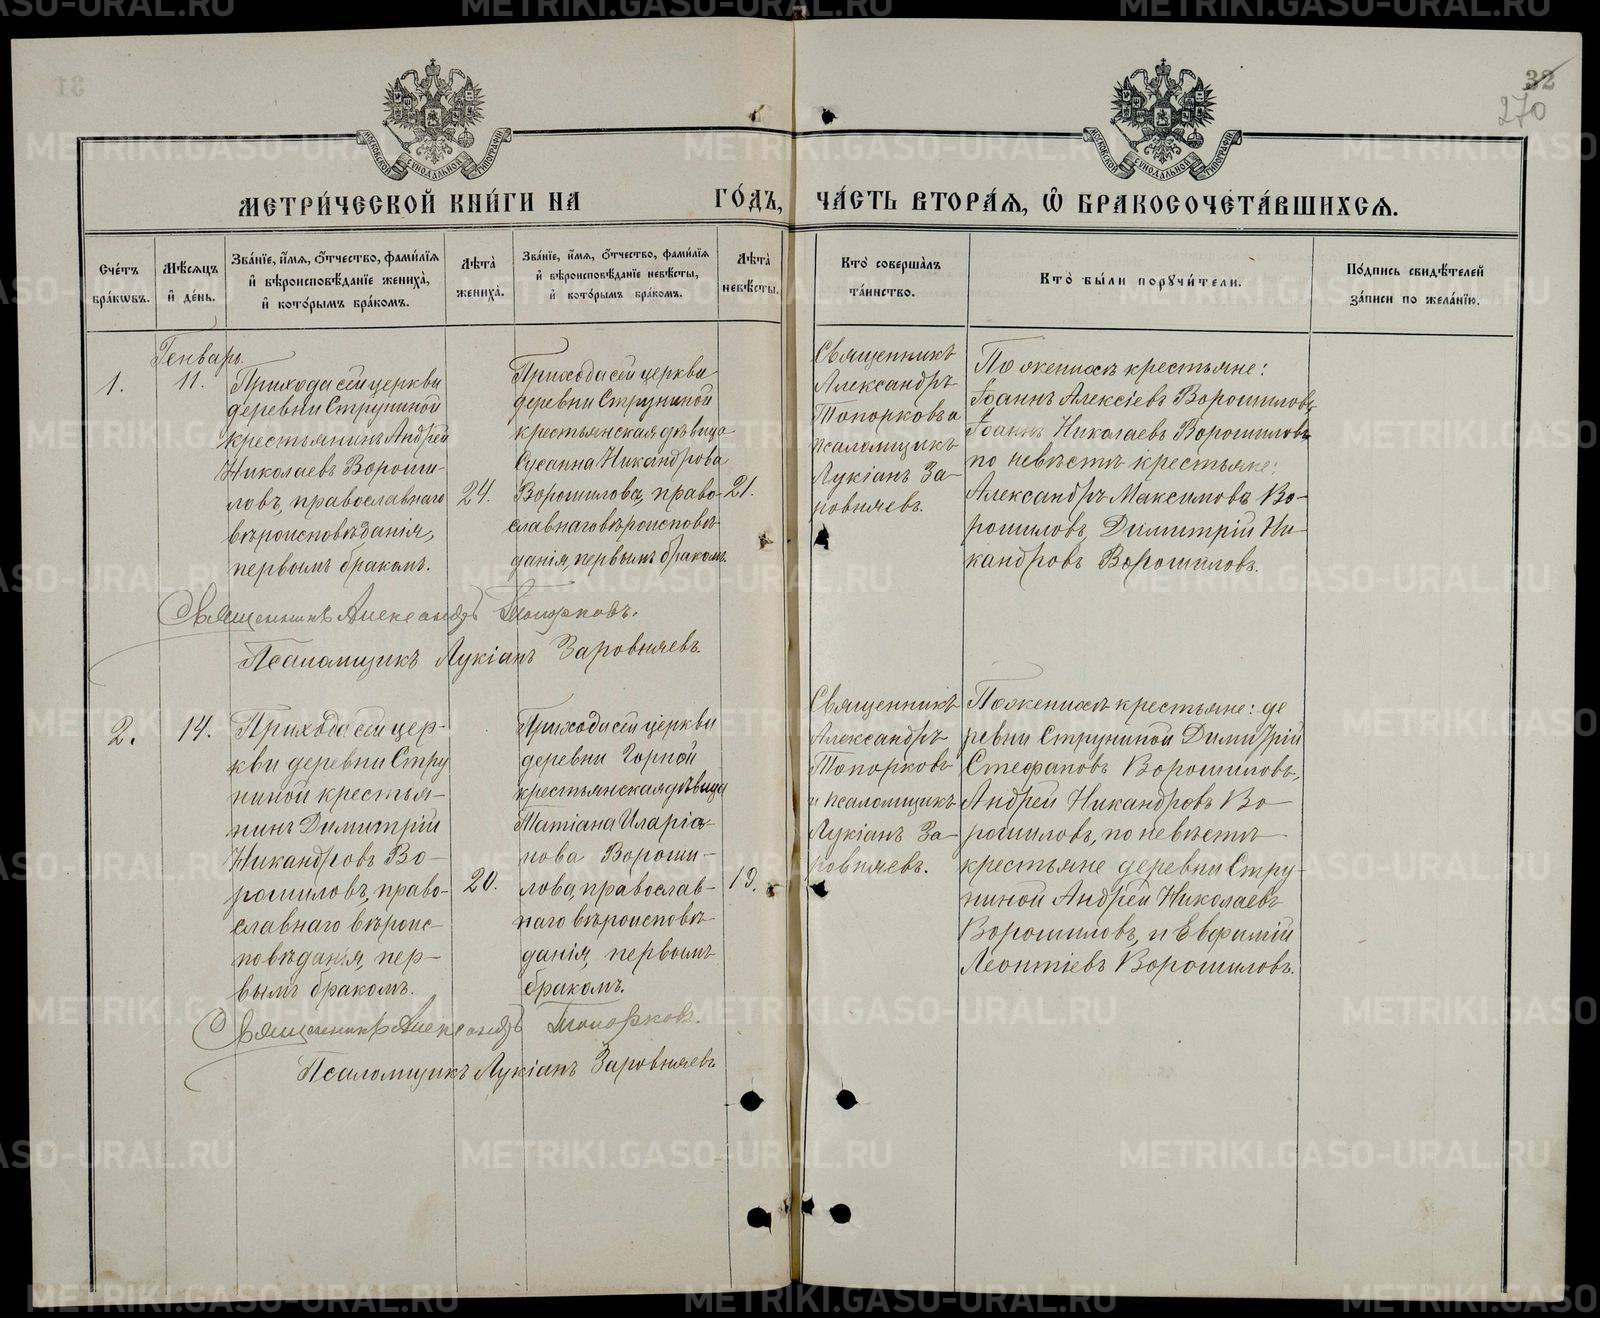 32
270
МЕТРИ́ЧЕСКОЙ КНИ́ГИ НА ГО́ДЪ, ЧА́СТЬ ВТОРА́Я, Ѡ҆ БРАКОСОЧЕТА́ВШИХСЯ.
Сче́тъ бра́кѡвъ.
Мѣ́сяцъ и҆ де́нь.
Зва́нїе, и҆́мя, ѻ҆́тчество, фами́лїя и҆ вѣроисповѣ́данїе жениха̀, и҆ кото́рымъ бра́комъ.
Лѣ́та̀ жениха̀.
Зва́нїе, и҆́мя, ѻ҆́тчество, фами́лїя и҆ вѣроисповѣ́данїе невѣ́сты, и҆ кото́рымъ бра́комъ.
Лѣ́та̀ невѣ́сты.
Кто̀ соверша́лъ та́инство.
Кто̀ бы́ли порꙋчи́тели.
По́дпись свидѣ́телей за́писи по жела́нїю.
Генварь.
1.
11.
Прихода сей церкви
деревни Струниной
крестьянинъ Андрей
Николаевъ Вороши-
ловъ, православнаго
вѣроисповѣданія,
первымъ бракомъ.
24.
Прихода сей церкви
деревни Струниной
крестьянская дѣвица
Сусанна Никандрова
Ворошилова, право-
славнаго вѣроисповѣ-
данія, первымъ бракомъ.
21.
Священникъ
Александръ
Топорковъ и
псаломщикъ
Лукіанъ За-
ровняевъ.
По женихѣ крестьяне:
Іоаннъ Алексіевъ Ворошиловъ,
Іоаннъ Николаевъ Ворошиловъ
по невѣстѣ крестьяне:
Александръ Максимовъ Во-
рошиловъ, Димитрій Ни-
кандровъ Ворошиловъ.
Священникъ Александръ Топорковъ.
Псаломщикъ Лукіанъ Заровняевъ.
2.
14.
Прихода сей цер-
кви деревни Стру
ниной крестья-
нинъ Димитрій
Никандровъ Во-
рошиловъ, право-
славнаго вѣроис-
повѣданія, пер-
вымъ бракомъ.
20.
Прихода сей церкви
деревни Горной
крестьянская дѣвица
Татіана Иларіо-
нова Вороши-
лова, православ-
наго вѣроисповѣ-
данія, первымъ
бракомъ.
19.
Священникъ
Александръ
Топорковъ
и псаломщикъ
Лукіанъ За-
ровняевъ.
По женихѣ крестьяне: де
ревни Струниной Димитрій
Стефановъ Ворошиловъ,
Андрей Никандровъ Во-
рошиловъ, по невѣстѣ
крестьяне деревни Стру-
ниной Андрей Николаевъ
Ворошиловъ, и Евфимій
Леонтіевъ Ворошиловъ.
Священникъ Александръ Топорковъ.
Псаломщикъ Лукіанъ Заровняевъ